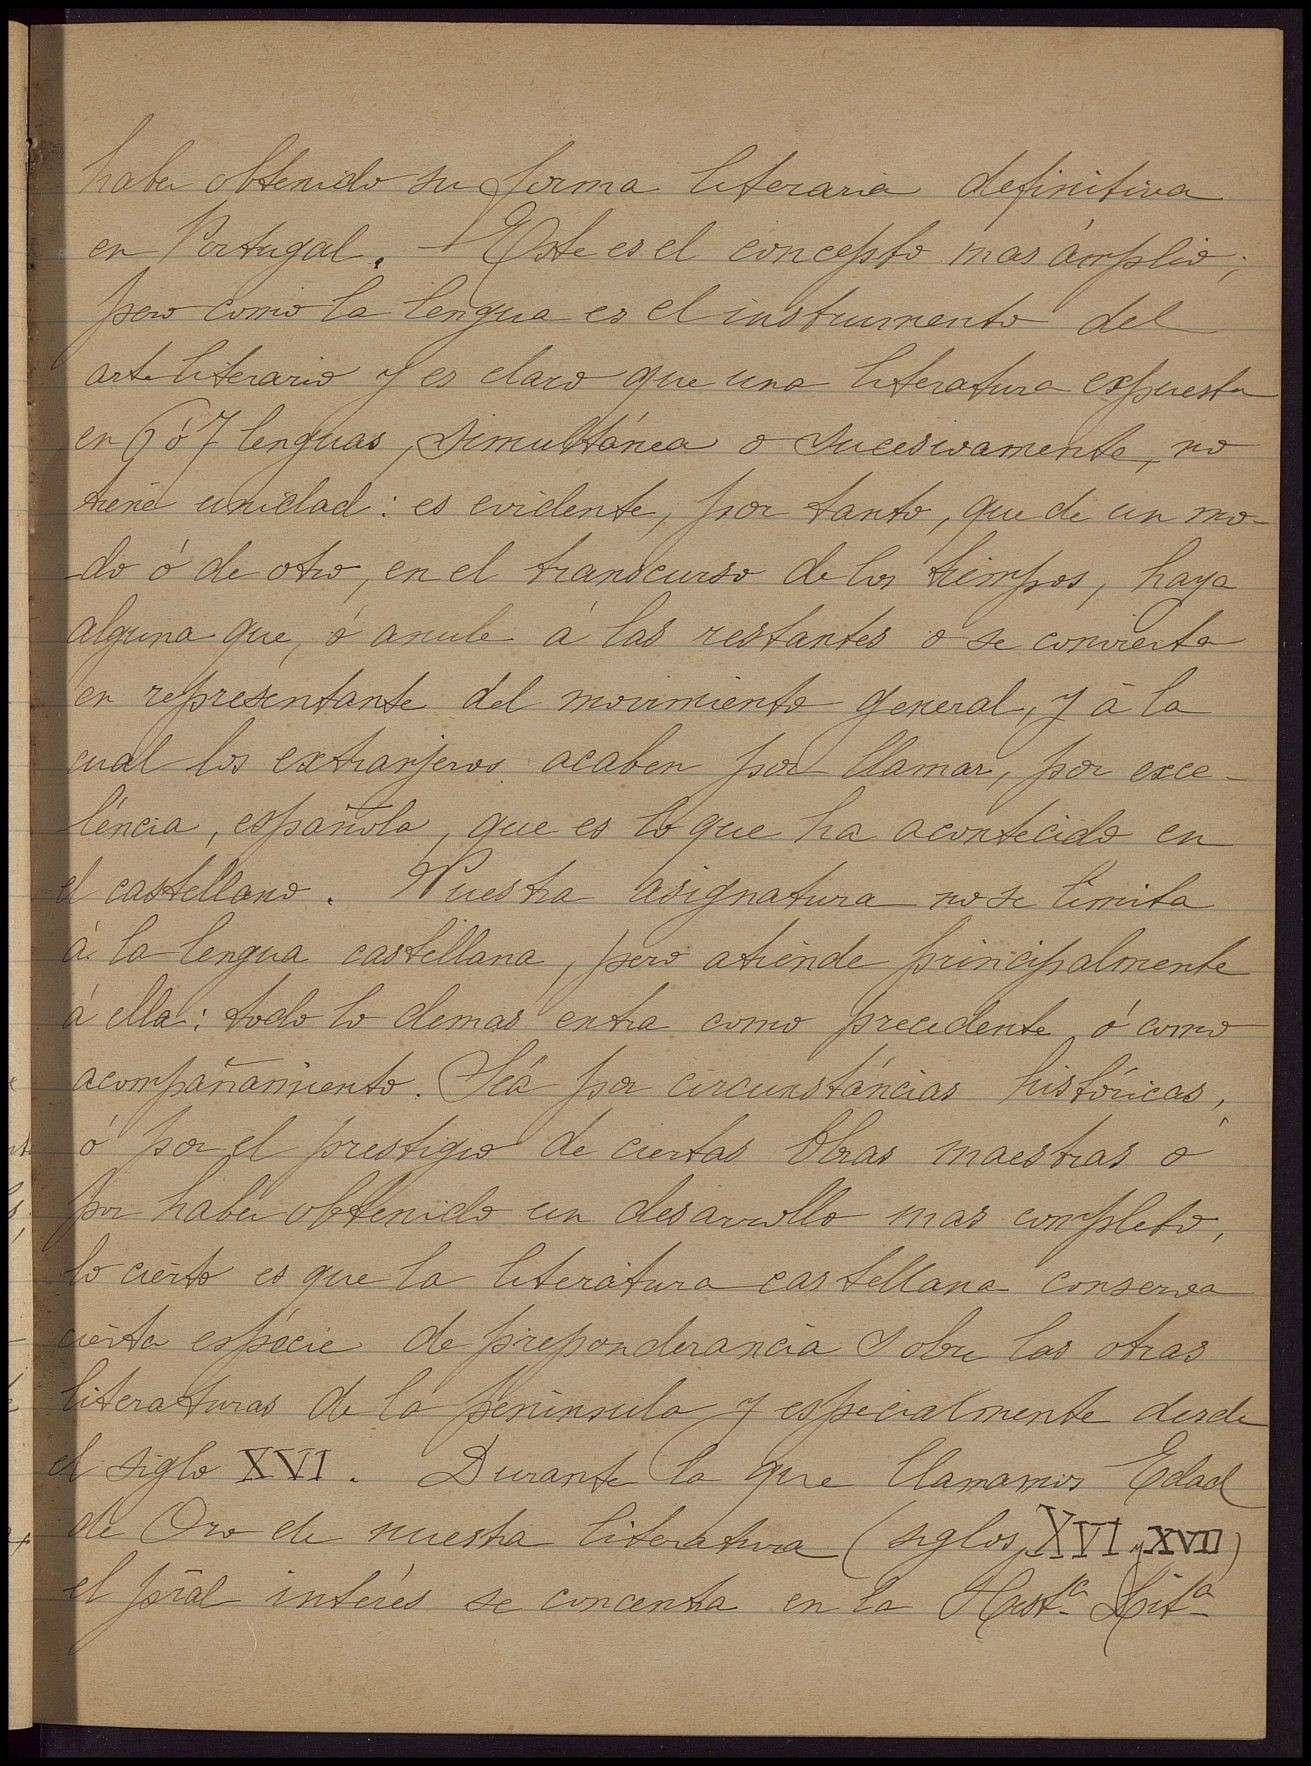 haber obtenido su forma literaria definitiva
en Portugal. Este es el concepto mas ámplio;
pero como la lengua es el instrumento del
arte literario y es claro que una literatura expuesta
en 6 ó 7 lenguas, simultánea o sucesivamente, no
tiene unidad: es evidente, por tanto, que de un mo-
do ó de otro, en el transcurso de los tiempos, haya
alguna que, ó anule á las restantes o se convierta
en representante del movimiento general, y á la
cual los extranjeros acaben por llamar, por exce-
léncia, española, que es lo que ha acontecido en
el castellano. Nuestra asignatura no se limita
á la lengua castellana, pero atiende principalmente
á ella: todo lo demas entra como precedente ó como
acompañamiento. Seá por circunstáncias históricas,
ó por el prestigio de ciertas Obras maestras ó
por haber obtenido un desarrollo mas completo,
lo cierto es que la literatura castellana conserva
cierta espécie de preponderancia sobre las otras
literaturas de la península y especialmente desde
el siglo XVI. Durante la que llamamos Edad
de Oro de nuestra literatura (siglos XVI y XVII)
el pral interés se concentra en la Histª Litª